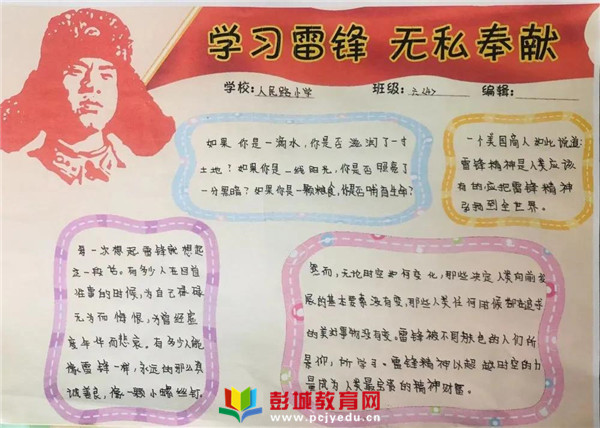 学习雷锋 无私奉献
学校: 人民路小学 班级: 六(4) 编辑:
如果你是一滴水,你是否滋润了一寸
土地?如果你是一线阳光,你是否照亮了
一分黑暗?如果你是一颗粮食,你是否哺育生命?
一个美国商人如此说道:
雷锋精神是人类应该
有的应把雷锋精神
带到全世界。
每一次想起雷锋就想起
这一段话。有多少人在回首
往事的时候,为自己碌碌
无为而悔恨,为曾经虚
度年华而悲哀。有多少人能
像雷锋一样,永远的那么真
诚善良,像一颗小螺丝钉。
然而,无论时空如何变化,那些决定人类向前发
展的基本要素没有变,那些人类任何时候都在追求
的美好事物没有变。雷锋被不同肤色的人们所
景仰,所学习。雷锋精神以超越时空的力
量成为人类最宝贵的精神财富。
彭城教育网
www.pcjyedu.cn